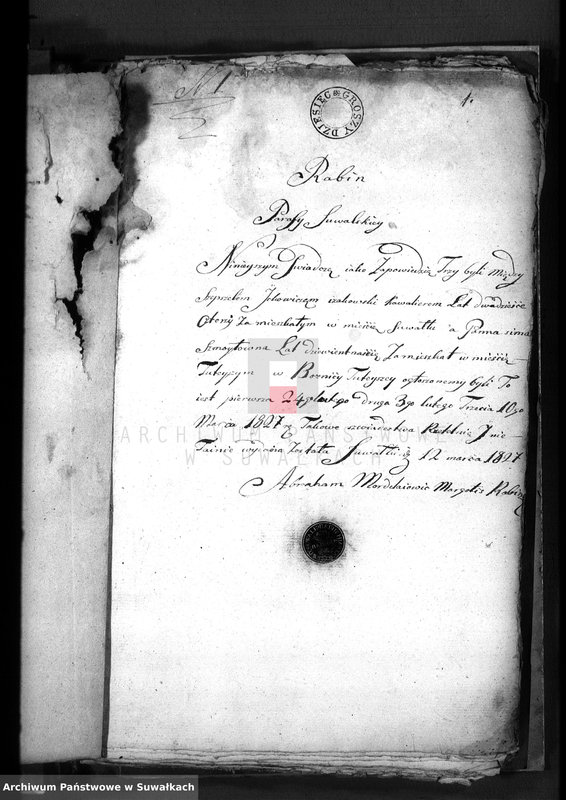 N 1
1.
DZIESIĘC GROSZY
Rabin
Parafy Suwalskiey
Ninieyszym Swiadczę iako Zapowiedzie Trzy byli między
Szymelem Ickowiczem kawalerem Lat dwadzieście
Cztery Zamieszkałym w mieście Suwałki a Panna
Lat dziewiętnaście Zamieszkał w mieście
Tuteyszym w Bożnicy Tuteyszey ogłaszonemy byli To
iest pierwsza 24go lutego druga 3go lutego Trzecia 10go
Marca 1827 r Takowe szwiadectwo
wydana Została Suwałki 12 marca 1827
Abraham Mordchaiowic Margolis Rabin
ARCHIWUM PAŃSTWOWE
W SUWAŁKACH
Archiwum Państwowe w Suwałkach